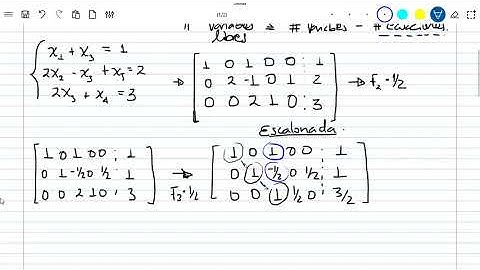 # Variables = # Variables - # Ecuaciones.
libres
x₁ + x₃ = 1
2x₂ - x₃ + x₅ = 2
2x₃ + x₄ = 3
→ [ 1 0 1 0 0 : 1
0 2 -1 0 1 : 2
0 0 2 1 0 : 3 ] → F₂ · 1/2
Escalonada.
[ 1 0 1 0 0 : 1
0 1 -1/2 0 1/2 : 1
0 0 2 1 0 : 3 ] → F₃ · 1/2
[ 1 0 1 0 0 : 1
0 1 -1/2 0 1/2 : 1
0 0 1 1/2 0 : 3/2 ]